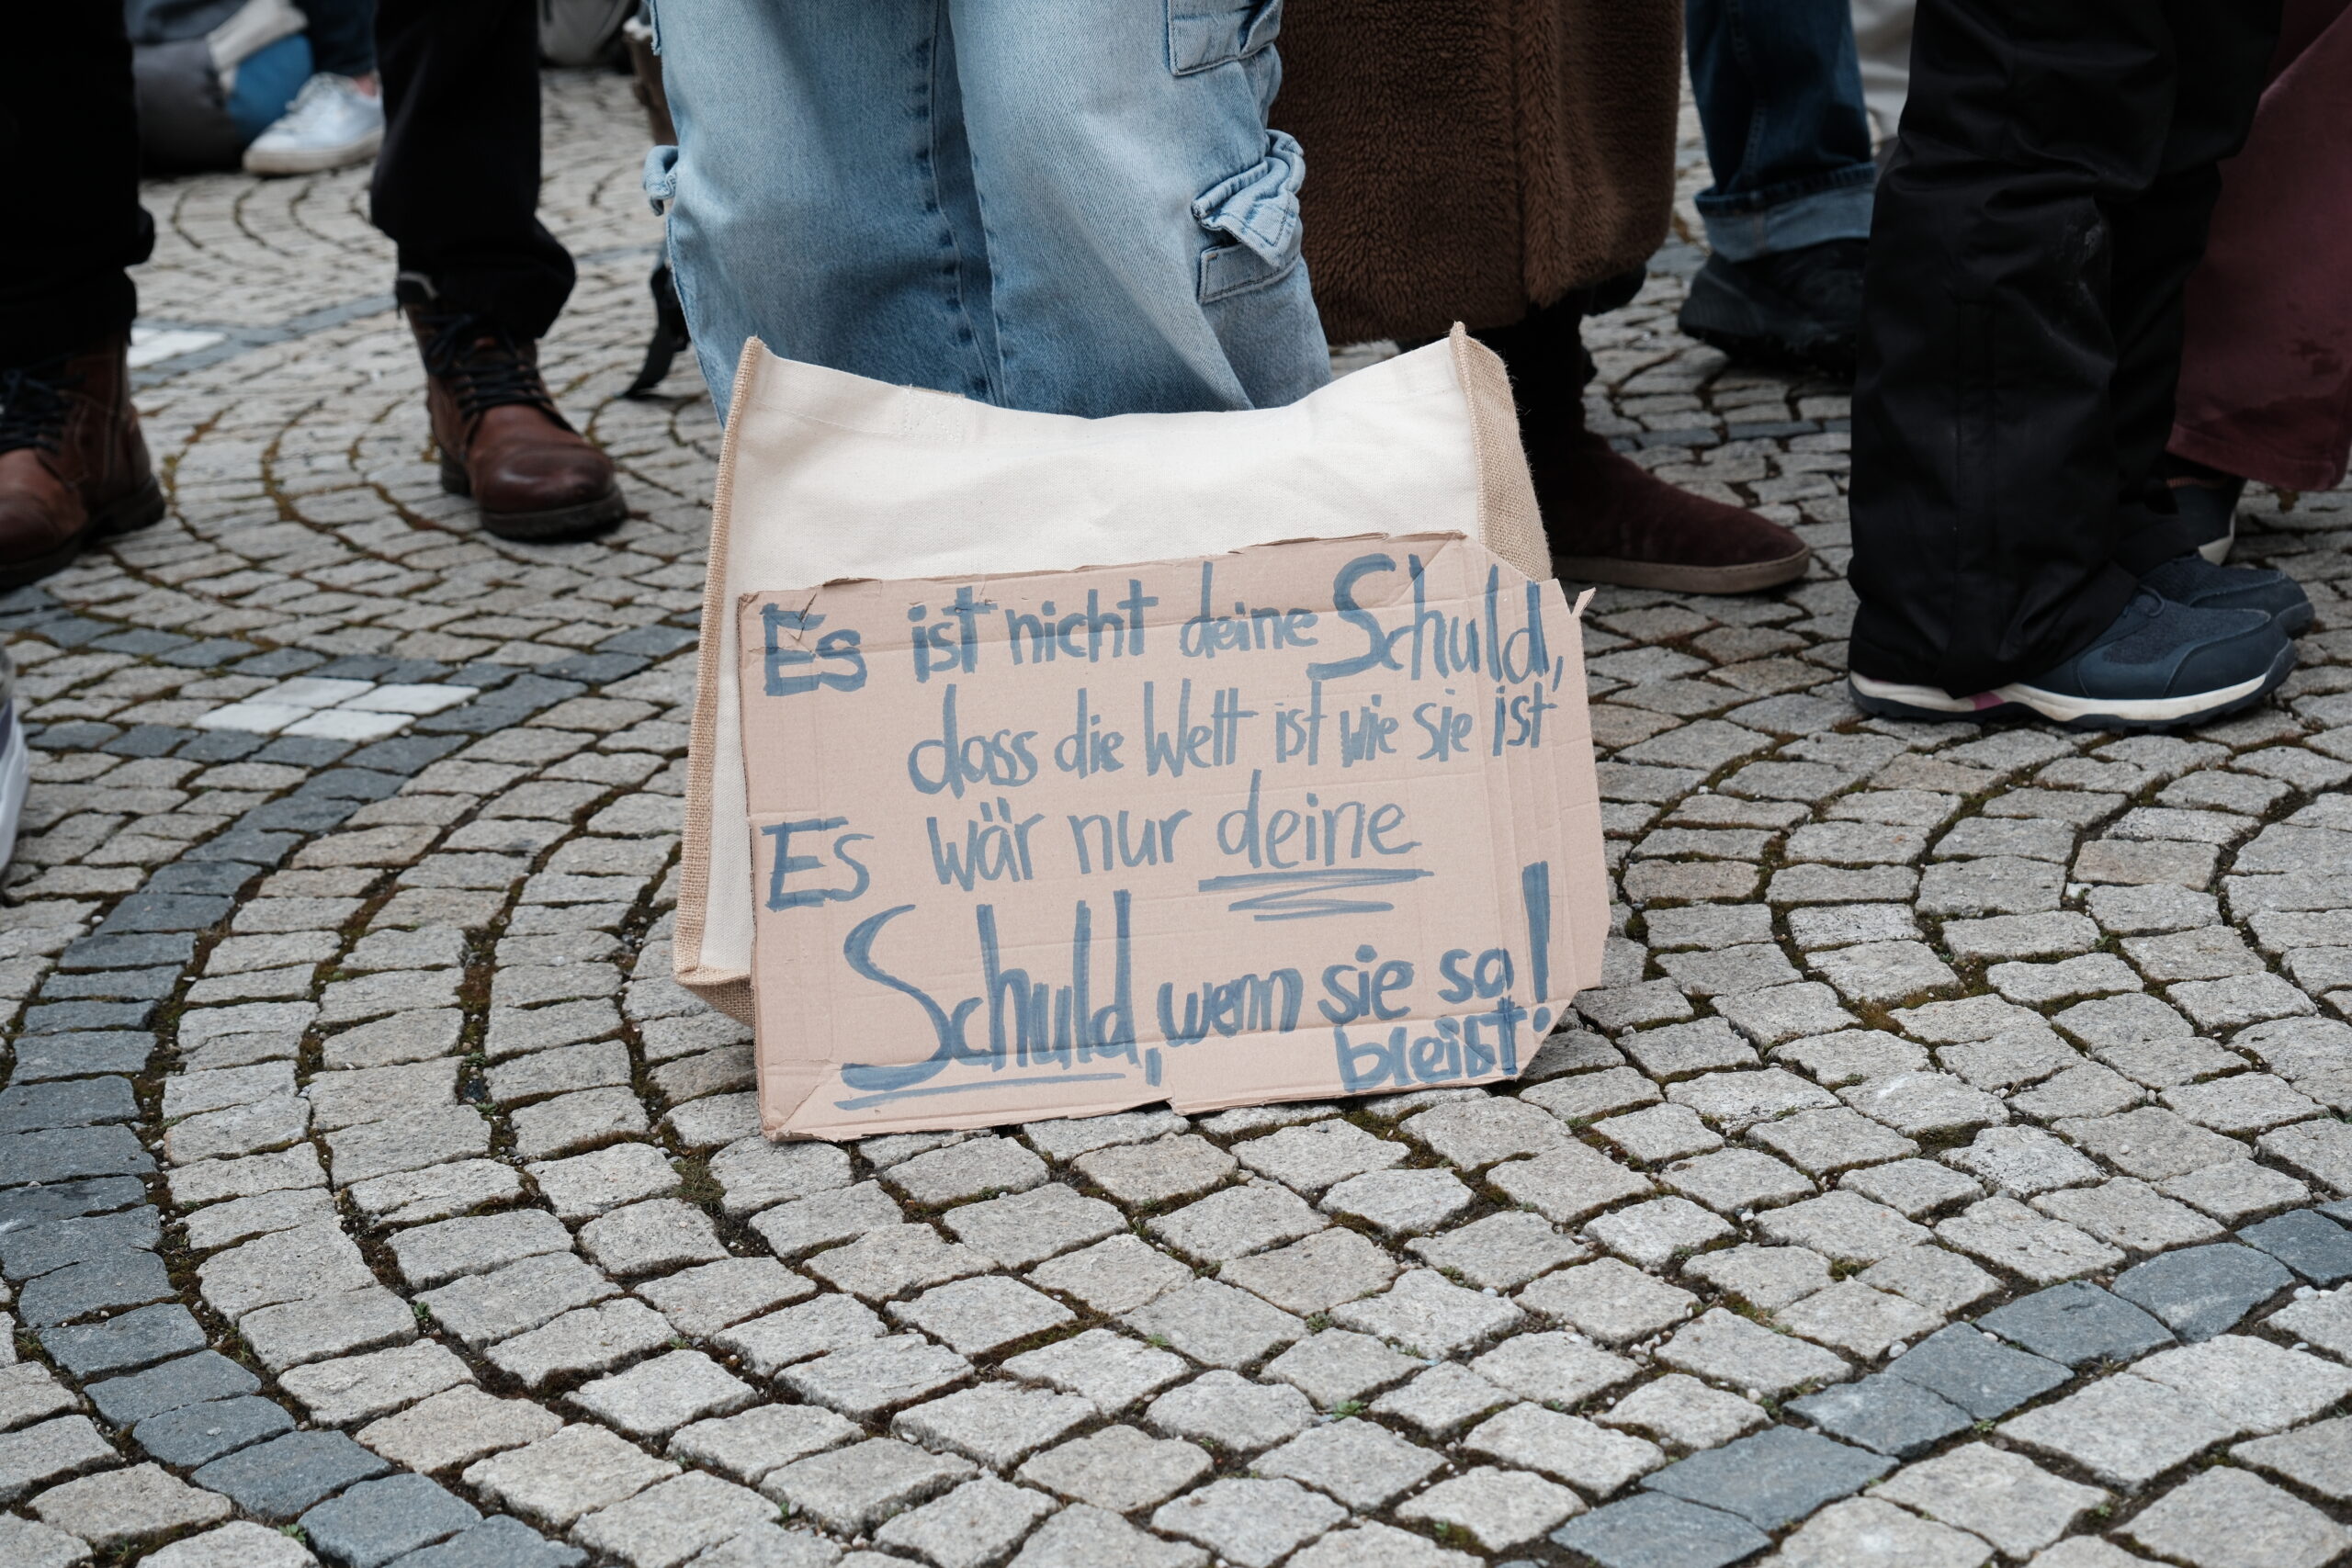 Es ist nicht deine Schuld,
dass die Welt ist wie sie ist
Es wär nur deine
Schuld, wenn sie so
bleibt!